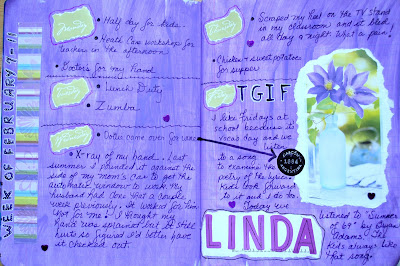 WEEK OF FEBRUARY 7-11
Monday
• Half day for kids.
• Heath Care workshops for
teachers in the afternoon
• Doctor's for my hand
Tuesday
• Lunch Duty
• Zumba
• Oster came over for wine
• X-ray of my hand... Last
summer I pounded it against the
side of my mom's car to get the
automatic window to work. My
husband had done that a couple
week previously. It worked for him
not for me! I thought my
hand was sprained but it still
hurts so I figured I'd better have
it checked out.
Thursday
• Scraped my heel on the TV stand
in my classroom and it bled
all day & night. What a pain!
• Chicken & sweet potatoes
for supper
Friday
TGIF
I like Fridays at
school because it's
vocab day and we
listen
to a song
to examine the
poetry of the lyrics.
Kids look forward
to it and I do too.
Today we
listened to "Summer
of 69" by Bryan
Adams. The
kids always like
that song.
LINDA